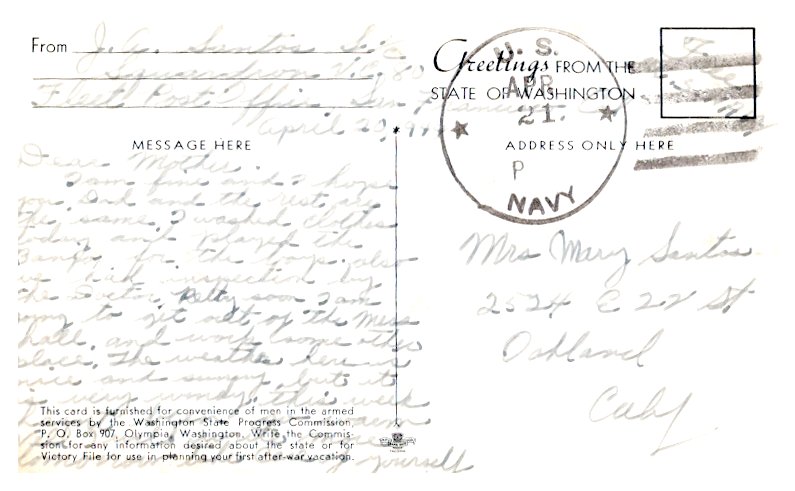 From J. A. Santos S 2/c
Squadron VB 80
Fleet Post Office San Francisco
April 20, 19
MESSAGE HERE
Dear Mother.
I am fine and I hope
you Dad and the rest are
the same. I washed clothes
today and played the
Banjo for the boys. also
we had inspection by
the Doctor. Pretty soon I am
going to get out of the Mess
hall. and work some other
place. The weather here is
nice and sunny. but it
is very windy. this week
yourself
This card is furnished for convenience of men in the armed
services by the Washington State Progress Commission,
P. O. Box 907, Olympia, Washington. Write the Commis-
sion for any information desired about the state or for
Victory File for use in planning your first after-war vacation.
Greetings FROM THE
STATE OF WASHINGTON
U. S.
APR
21.
P
NAVY
ADDRESS ONLY HERE
Mrs Mary Santos
2524 E 22 St
Oakland
Calif.